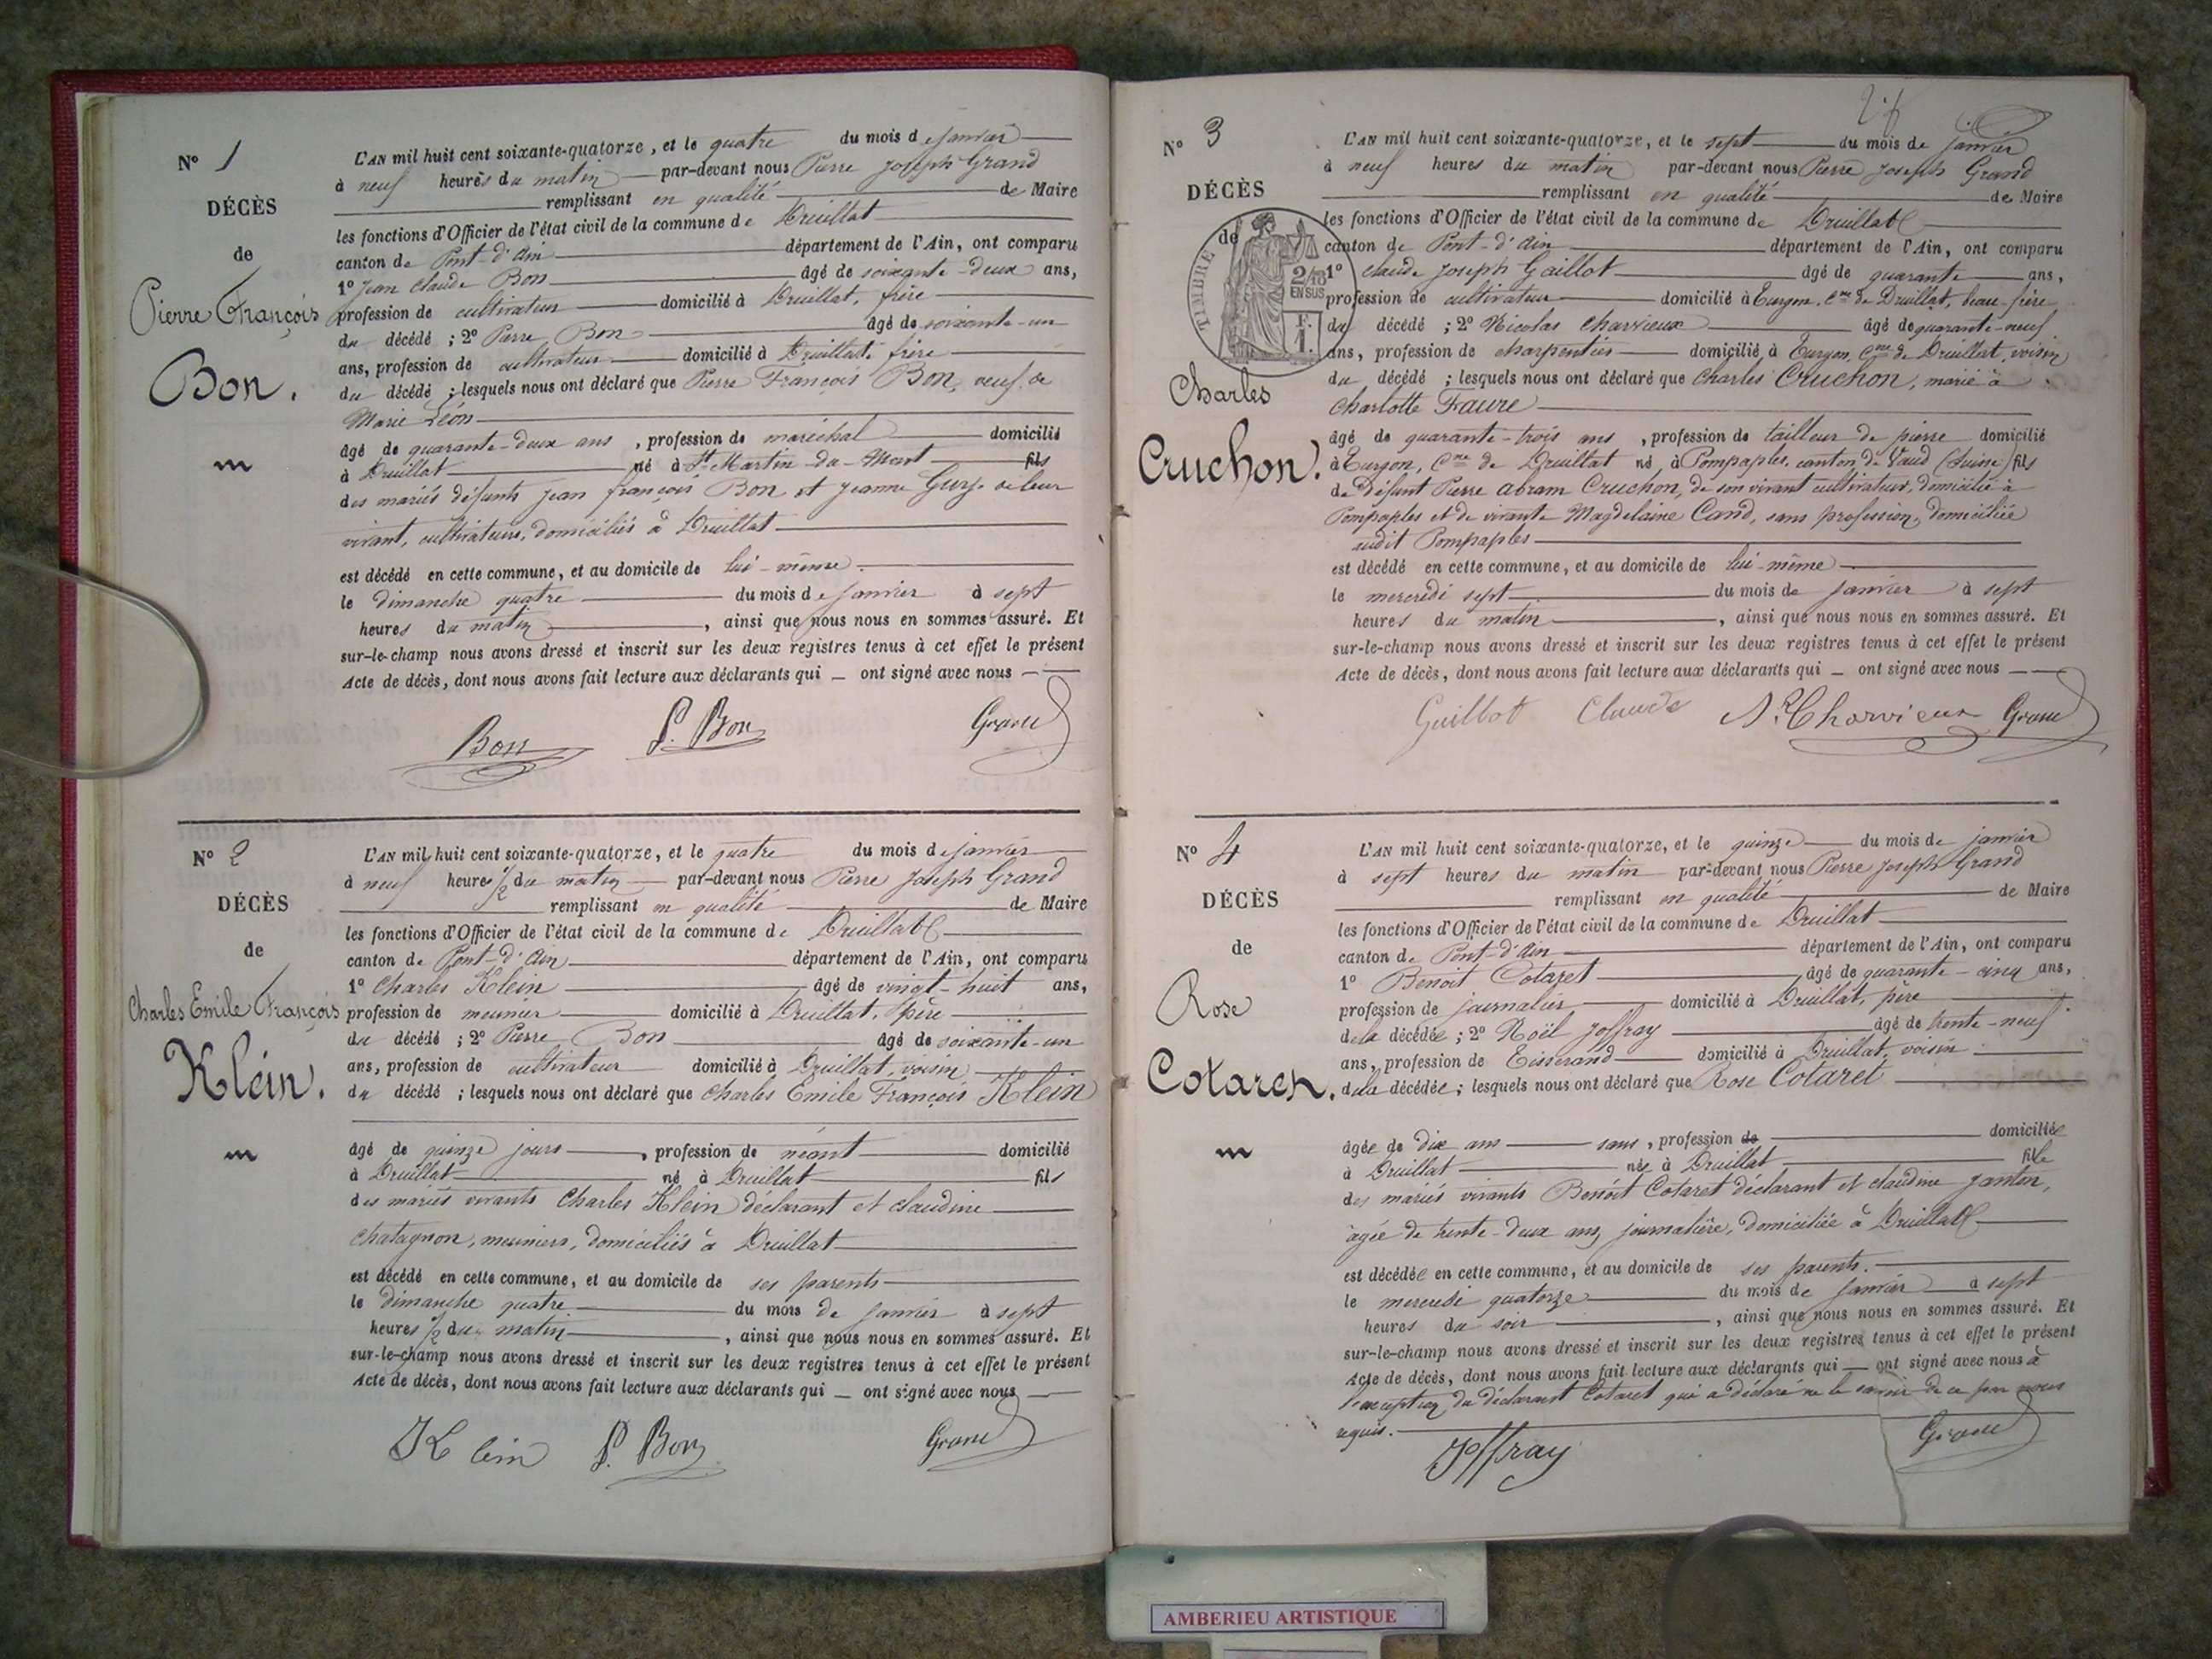 N° 1
DÉCÈS
de
Pierre François
Bon.
L'AN mil huit cent soixante-quatorze, et le quatre du mois de janvier
à neuf heures du matin par-devant nous Pierre Joseph Grand
remplissant en qualité de Maire
les fonctions d'Officier de l'état civil de la commune de Druillat
canton de Pont-d'Ain département de l'Ain, ont comparu
1° Jean Claude Bon âgé de soixante-deux ans,
profession de cultivateur domicilié à Druillat, frère
du décédé ; 2° Pierre Bon âgé de soixante-un
ans, profession de cultivateur domicilié à Druillat, frère
du décédé ; lesquels nous ont déclaré que Pierre François Bon, veuf de
Marie Léon
âgé de quarante-deux ans, profession de maréchal domicilié
à Druillat né à St Martin-du-Mont fils
des mariés défunts Jean François Bon et Jeanne de leur
vivant, cultivateurs, domiciliés à Druillat
est décédé en cette commune, et au domicile de lui-même.
le dimanche quatre du mois de janvier à sept
heures du matin, ainsi que nous nous en sommes assuré. Et
sur-le-champ nous avons dressé et inscrit sur les deux registres tenus à cet effet le présent
Acte de décès, dont nous avons fait lecture aux déclarants qui _ ont signé avec nous
Bon P. Bon Grand
N° 2
DÉCÈS
de
Charles Emile François
Klein.
L'AN mil huit cent soixante-quatorze, et le quatre du mois de janvier
à neuf heures 1/2 du matin par-devant nous Pierre Joseph Grand
remplissant en qualité de Maire
les fonctions d'Officier de l'état civil de la commune de Druillat
canton de Pont-d'Ain département de l'Ain, ont comparu
1° Charles Klein âgé de vingt-huit ans,
profession de meunier domicilié à Druillat, père
du décédé ; 2° Pierre Bon âgé de soixante-un
ans, profession de cultivateur domicilié à Druillat, voisin
du décédé ; lesquels nous ont déclaré que Charles Emile François Klein
âgé de quinze jours, profession de néant domicilié
à Druillat né à Druillat fils
des mariés vivants Charles Klein déclarant et Claudine
Chatagnon, meuniers, domiciliés à Druillat
est décédé en cette commune, et au domicile de ses parents
le dimanche quatre du mois de janvier à sept
heures 1/2 du matin, ainsi que nous nous en sommes assuré. Et
sur-le-champ nous avons dressé et inscrit sur les deux registres tenus à cet effet le présent
Acte de décès, dont nous avons fait lecture aux déclarants qui _ ont signé avec nous
Klein P. Bon Grand
N° 3
DÉCÈS
de
TIMBRE
2/10
EN SUS
F.
1.
Charles
Cruchon.
L'AN mil huit cent soixante-quatorze, et le sept du mois de janvier
à neuf heures du matin par-devant nous Pierre Joseph Grand
remplissant en qualité de Maire
les fonctions d'Officier de l'état civil de la commune de Druillat
canton de Pont-d'Ain département de l'Ain, ont comparu
1° Claude Joseph Gaillot âgé de quarante ans,
profession de cultivateur domicilié à Turgon, Cne de Druillat, beau-frère
du décédé ; 2° Nicolas Charvieux âgé de quarante-neuf
ans, profession de charpentier domicilié à Turgon, Cne de Druillat, voisin
du décédé ; lesquels nous ont déclaré que Charles Cruchon, marié à
Charlotte Faure
âgé de quarante-trois ans, profession de tailleur de pierre domicilié
à Turgon, Cne de Druillat né à Pompaples, canton de Vaud (Suisse) fils
de défunt Pierre Abram Cruchon, de son vivant cultivateur, domicilié à
Pompaples et de vivante Magdelaine Cand, sans profession, domiciliée
audit Pompaples
est décédé en cette commune, et au domicile de lui-même
le mercredi sept du mois de janvier à sept
heures du matin, ainsi que nous nous en sommes assuré. Et
sur-le-champ nous avons dressé et inscrit sur les deux registres tenus à cet effet le présent
Acte de décès, dont nous avons fait lecture aux déclarants qui _ ont signé avec nous
Guillot Claude N. Charvieux Grand
N° 4
DÉCÈS
de
Rose
Cotaret.
L'AN mil huit cent soixante-quatorze, et le quinze du mois de janvier
à sept heures du matin par-devant nous Pierre Joseph Grand
remplissant en qualité de Maire
les fonctions d'Officier de l'état civil de la commune de Druillat
canton de Pont-d'Ain département de l'Ain, ont comparu
1° Benoit Cotaret âgé de quarante-cinq ans,
profession de journalier domicilié à Druillat, père
de la décédée ; 2° Noël Joffray âgé de trente-neuf
ans, profession de Tisserand domicilié à Druillat, voisin
de la décédée ; lesquels nous ont déclaré que Rose Cotaret
âgée de dix ans sans, profession de domiciliée
à Druillat née à Druillat fille
des mariés vivants Benoit Cotaret déclarant et Claudine Janton,
âgée de trente-deux ans, journalière, domiciliée à Druillat
est décédée en cette commune, et au domicile de ses parents.
le mercredi quatorze du mois de janvier à sept
heures du soir, ainsi que nous nous en sommes assuré. Et
sur-le-champ nous avons dressé et inscrit sur les deux registres tenus à cet effet le présent
Acte de décès, dont nous avons fait lecture aux déclarants qui _ ont signé avec nous à
l'exception du déclarant Cotaret qui a déclaré ne le savoir de ce par nous
requis.
Joffray Grand
AMBERIEU ARTISTIQUE